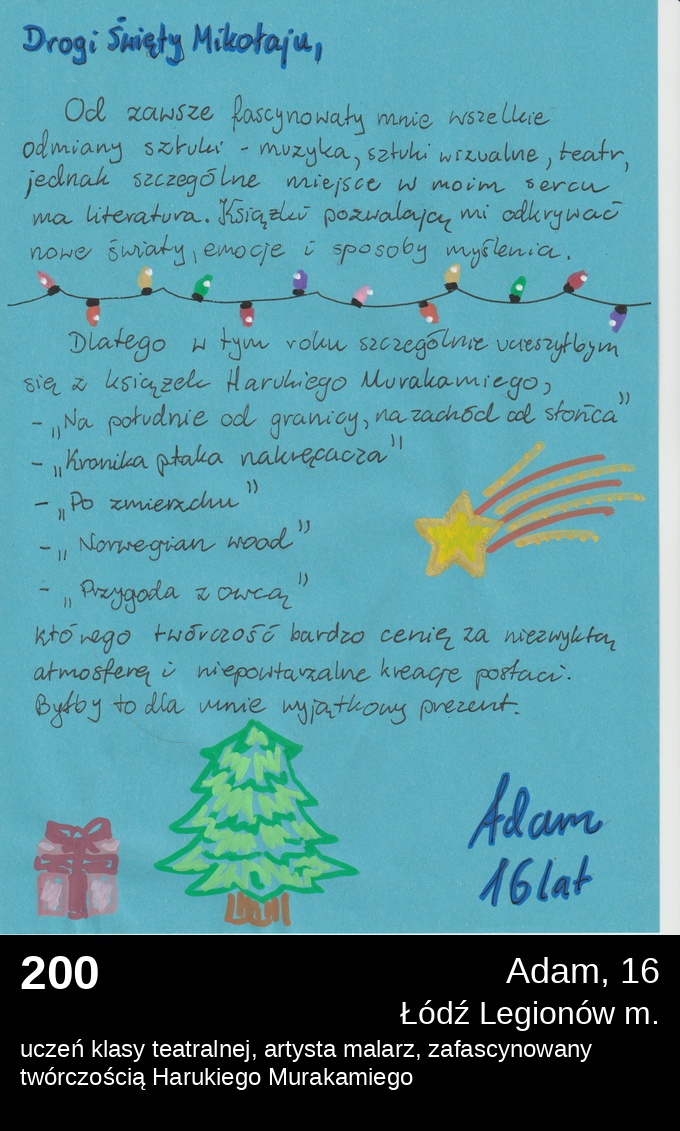 Drogi Święty Mikołaju,
Od zawsze fascynowały mnie wszelkie
odmiany sztuki - muzyka, sztuki wizualne, teatr,
jednak szczególne miejsce w moim sercu
ma literatura. Książki pozwalają mi odkrywać
nowe światy, emocje i sposoby myślenia.
Dlatego w tym roku szczególnie ucieszyłbym
się z książek Harukiego Murakamiego,
- „Na południe od granicy, na zachód od słońca”
- „Kronika ptaka nakręcacza”
- „Po zmierzchu”
- „Norwegian wood”
- „Przygoda z owcą”
którego twórczość bardzo cenię za niezwykłą
atmosferę i niepowtarzalne kreacje postaci.
Byłby to dla mnie wyjątkowy prezent.
Adam
16 lat
200
Adam, 16
Łódź Legionów m.
uczeń klasy teatralnej, artysta malarz, zafascynowany
twórczością Harukiego Murakamiego